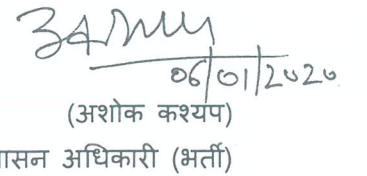 06/01/2020
(अशोक कश्यप)
ासन अधिकारी (भर्ती)